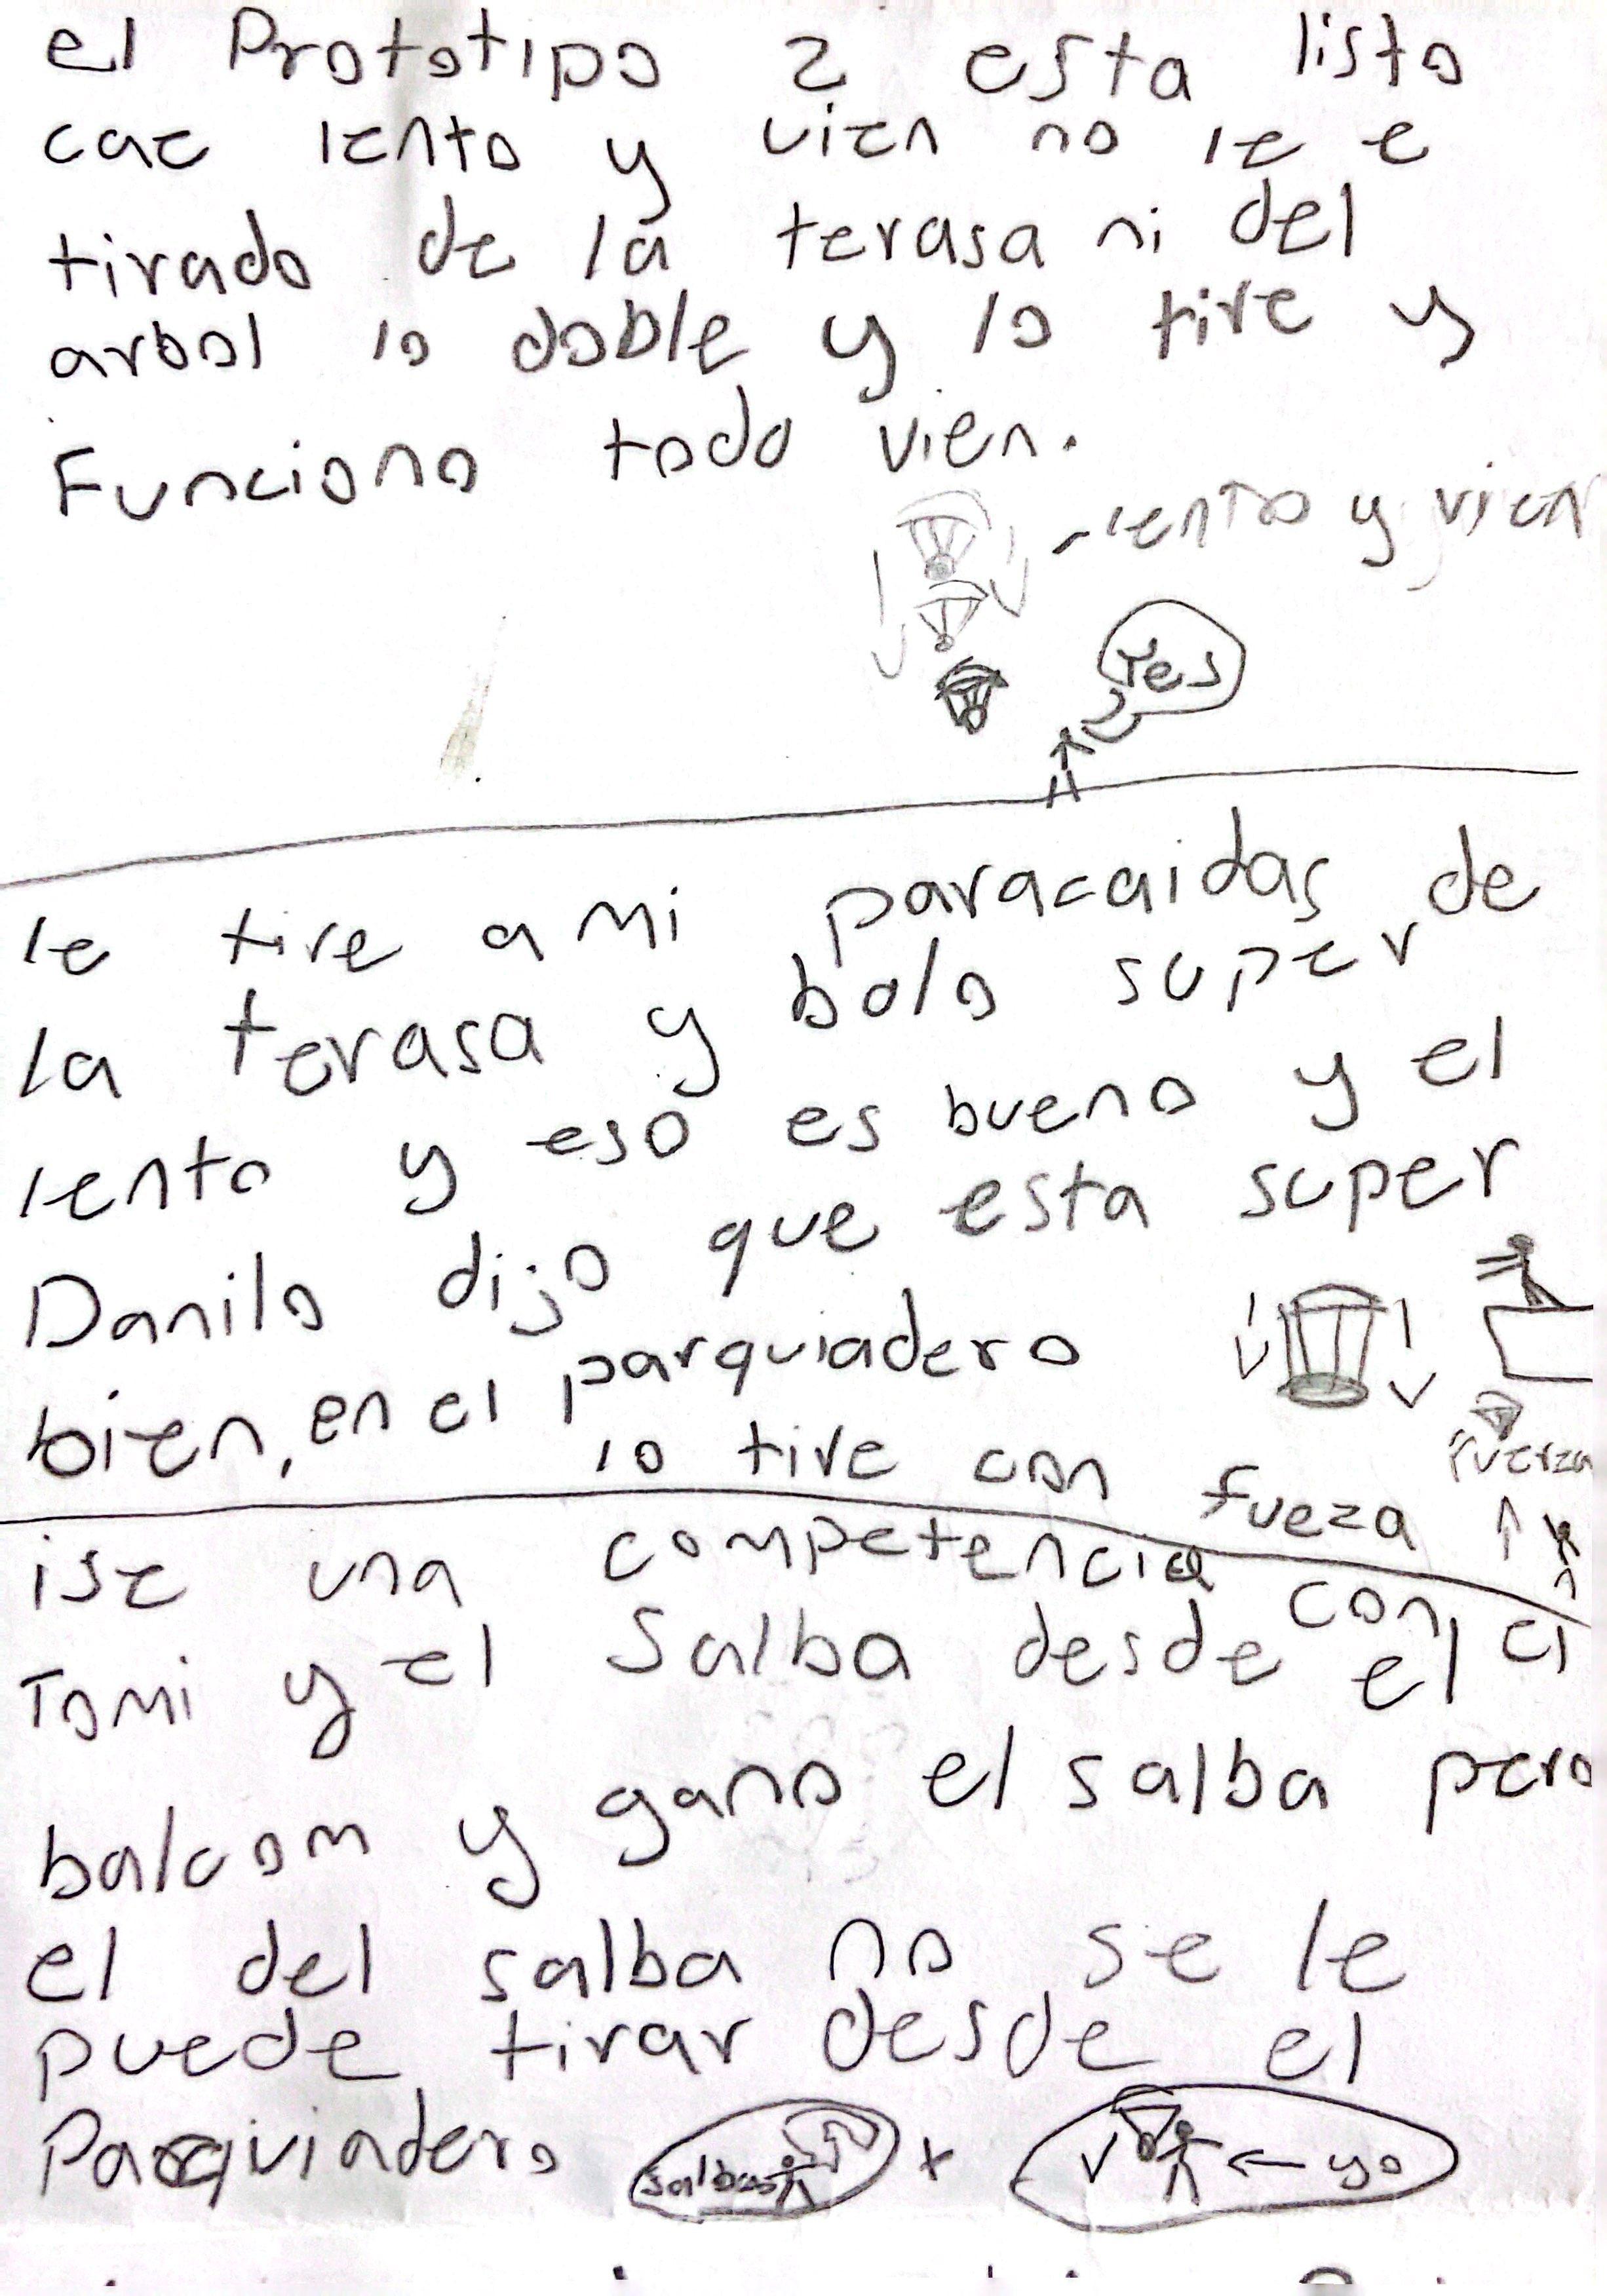 el Prototipo 2 esta listo
cae lento y vien no le e
tirado de la terasa ni del
arbol lo doble y lo tire y
Funciono todo vien.
lento y vien
Yes
le tire a mi paracaidas de
la terasa y bolo super
lento y eso es bueno y el
Danilo dijo que esta super
bien, en el parquiadero
lo tire con fueza
fuerza
ise una competencia con el
Tomi y el Salba desde el
balcom y gano el salba pero
el del salba no se le
puede tirar desde el
Parquiadero
salba x ← yo